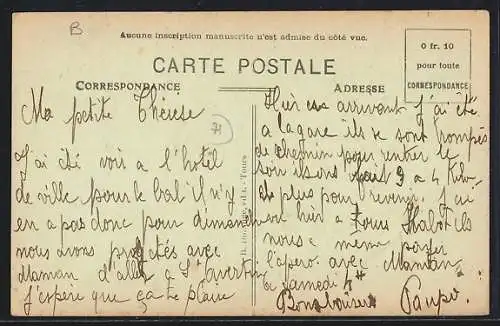 B
Aucune inscription manuscrite n'est admise du côté vue.
CARTE POSTALE
0 fr. 10
pour toute
CORRESPONDANCE
CORRESPONDANCE
ADRESSE
Ma petite Thérèse
J'ai été voir a l'hôtel
de ville pour le bal il n'y
en a pas donc pour dimanche
nous avons projetés avec
Maman d'aller a St Avertin
J'espère que ça te plaire
Hier en arrivant J'ai été
a la gare ils se sont trompés
de chemin pour rentrer le
soir ils ont fait 3 a 4 Kilo
de plus pour revenir. J'ai
hier a tous ils
nous a même payer
l'apero. avec Maman
a samedi
Bons baisers Paupo.